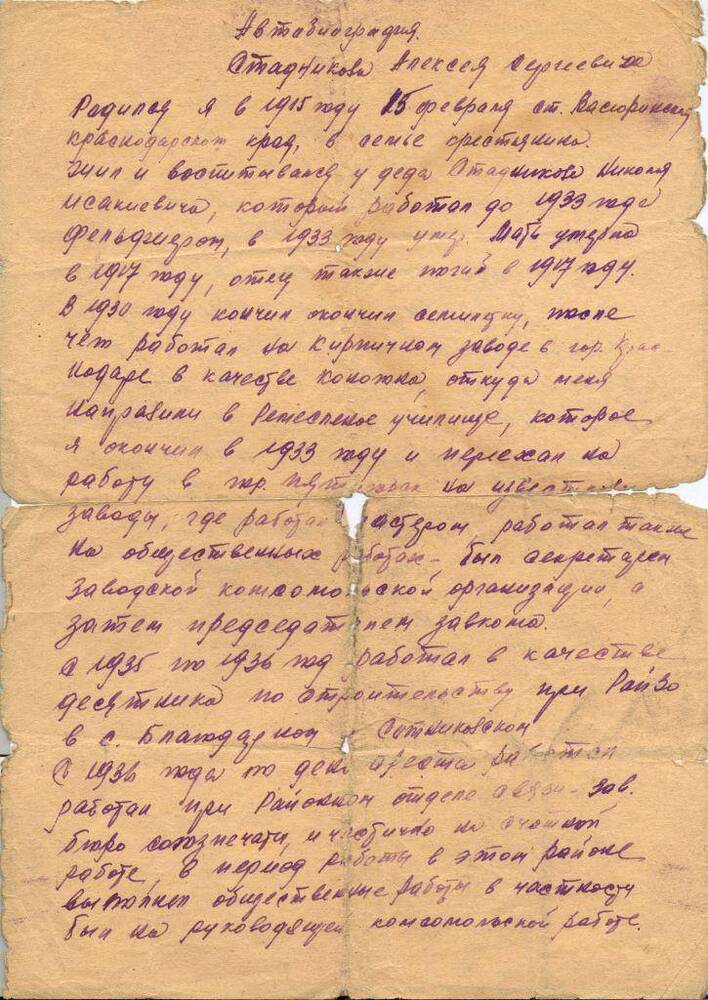 Автобиография.
Стадникова Алексея Сергеевича
Родился я в 1915 году 15 февраля ст. Васюринской
Краснодарском край, в семье крестьянина.
Жил и воспитывался у деда Стадникова Николя
Исакиевича, который работал до 1933 года
Фельдшером, в 1933 году умер. Мать умерла
в 1917 году, отец также погиб в 1917 году.
В 1930 году кончил окончил семилетку, после
чего работал на Кирпичном заводе в гор. Крас-
нодаре в качестве коножка, откуда меня
направили в Ремесленое училище, которое
я окончил в 1933 году и переехал на
работу в гор. на
заводы, где работал мастером работал также
на общественных работах – был секретарем
заводской комсомольской организации, а
затем председателем завкома.
С 1935 по 1936 год работал в качестве
десятника по строительству при РайЗО
в с. Благодарном Сотниковском
С 1936 года по день ареста работал
работал при Районном отделе связи – зав.
бюро союзпечати, и частично на счетной
работе, в период работы в этом районе
выполнял общественные работы в частности
был на руководящей комсомольской работе.